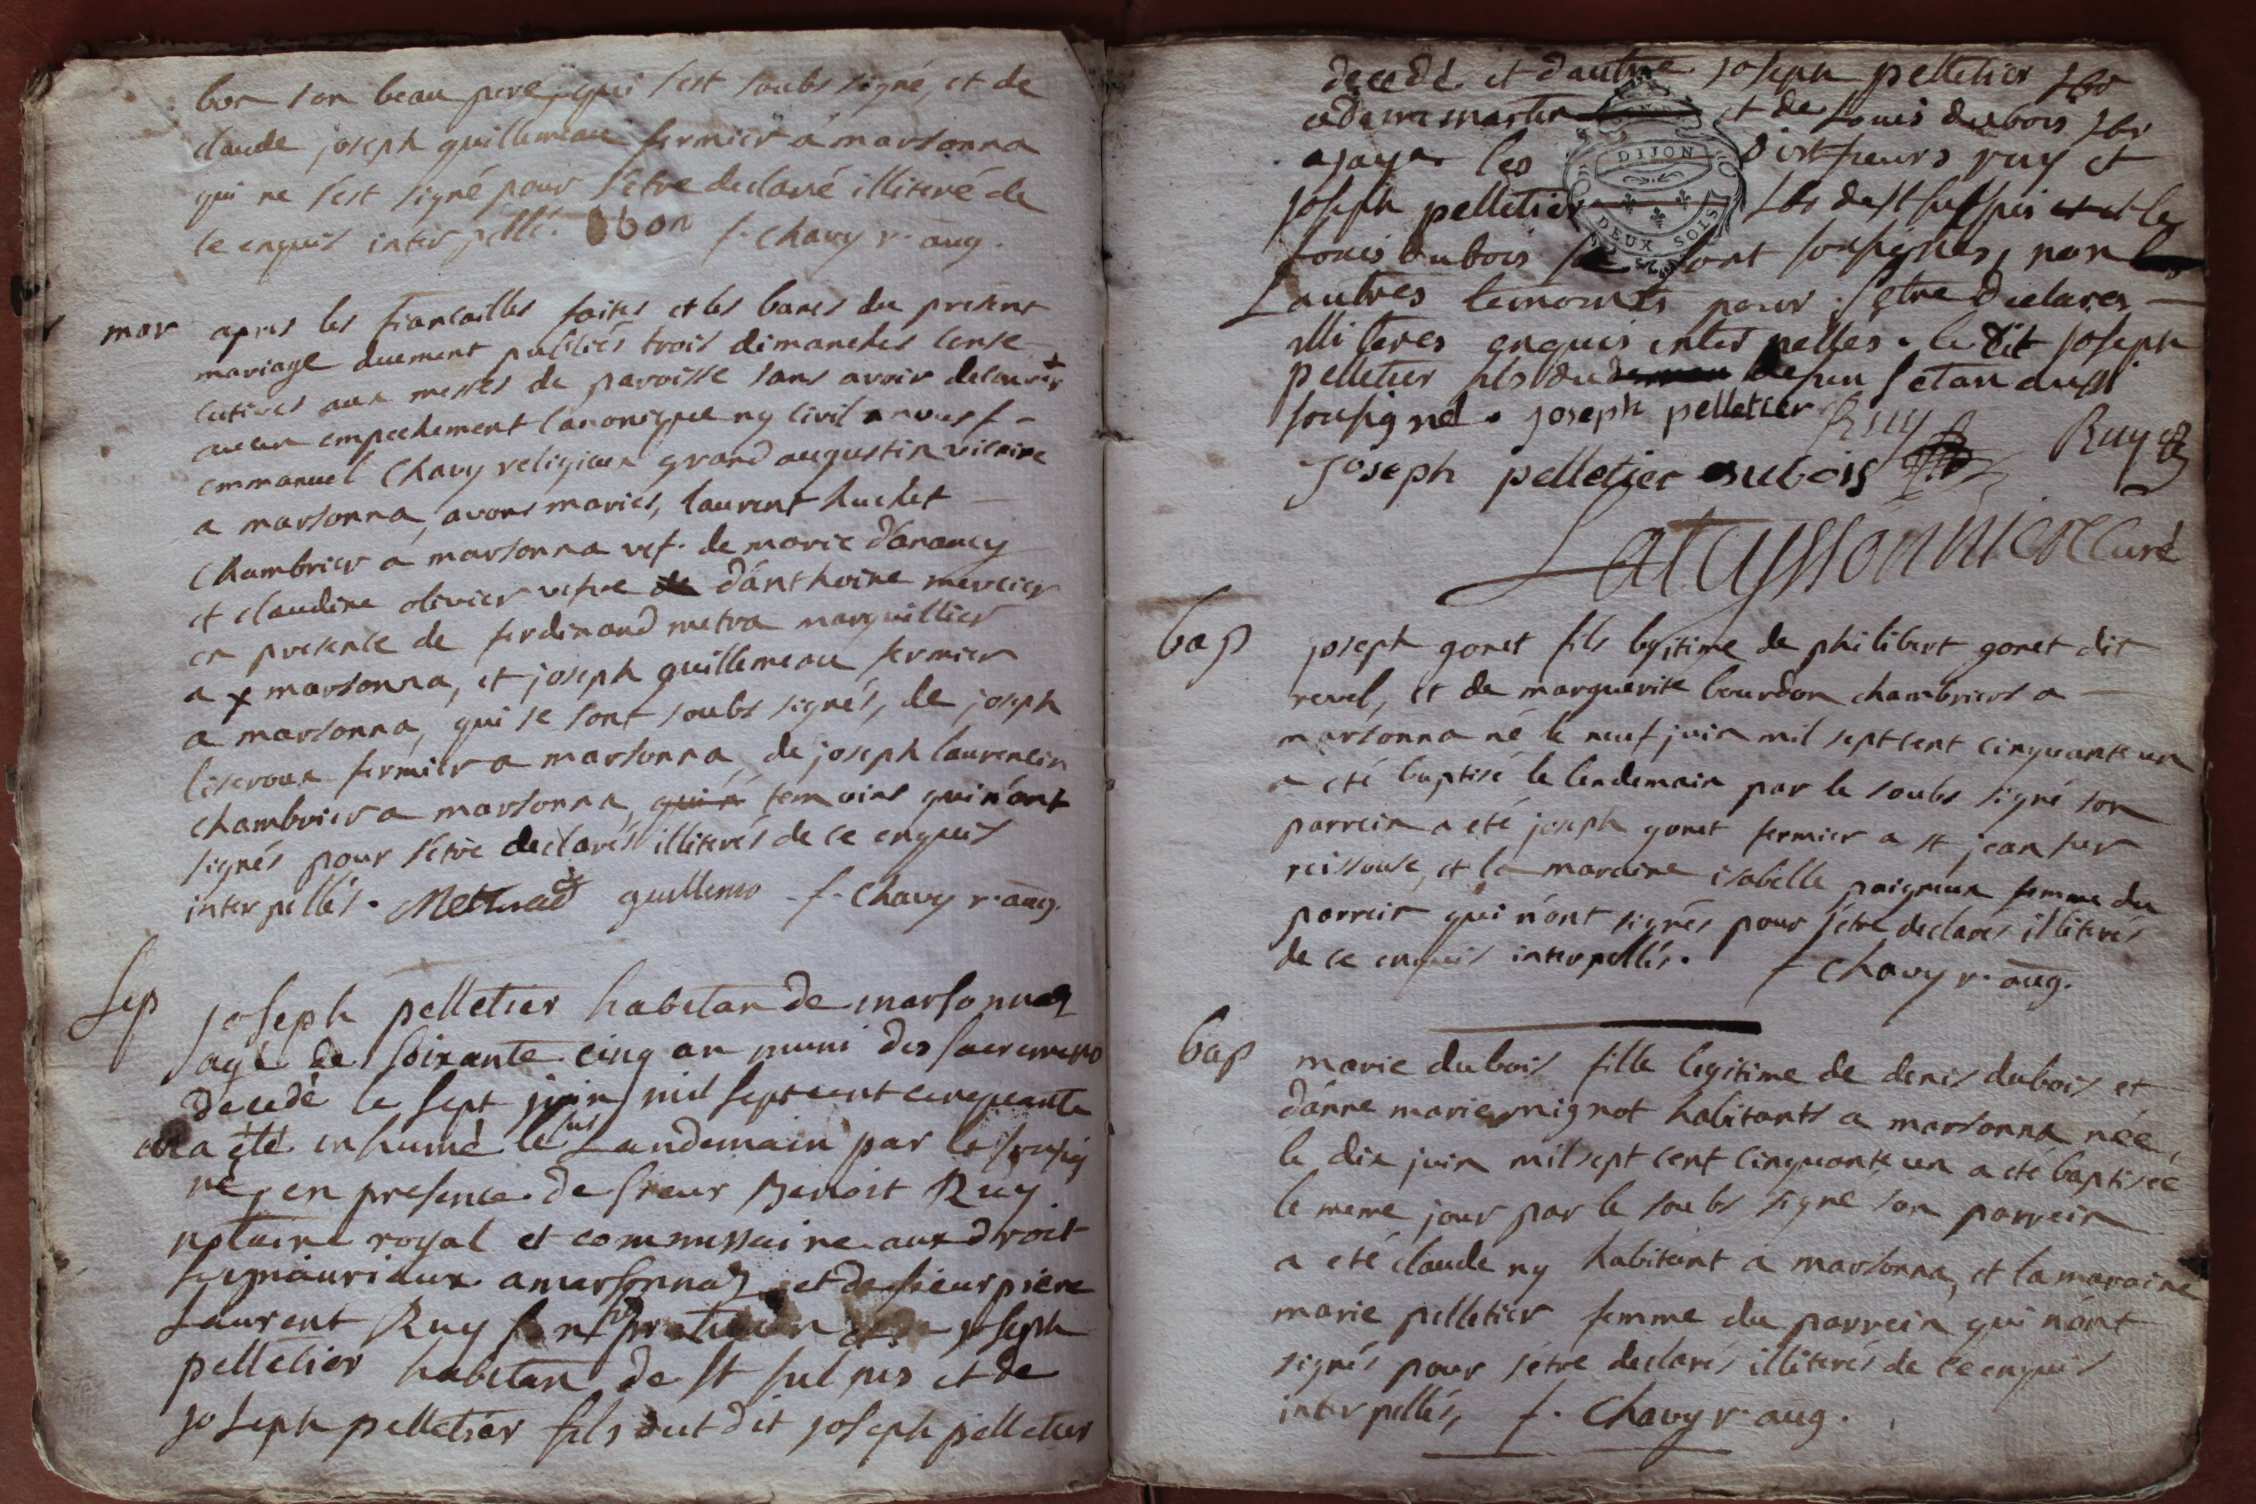 bon son beau pere, qui s'est soubs signé, et de
claude joseph guillemeau fermier a marsonna
qui ne s'est signé pour s'etre declaré illiteré de
ce enquis interpellé. Obon f. Chavy r. aug.
mar
apres les fiancailles faites et les bancs du present
mariage duement publiés trois dimanches conse
cutives aux messes de paroisse sans avoir decouvert
aucun empechement canonique ny civil nous f
emmanuel Chavy religieux grand augustin vicaire
a marsonna, avons mariés, laurent huchet
Chambrier a marsonna vef. de marie d'anancy
et claudine olivier vefve de d'anthoine mercier
en presence de ferdinand metra marguillier
a marsonna, et joseph guillemeau fermier
a marsonna, qui se sont soubs signés, de joseph
liseroux fermier a marsonna, de joseph laurencin
chambrier a marsonna, temoins qui n'ont
signés pour s'etre declarés illiterés de ce enquis
interpellés. guillemo f. Chavy r. aug.
Sep
joseph pelletier habitan de marsonnaz
agé de soixante cinq an muni des sacremens
decedé le sept juin mil sept cent cinquante
a été inhumé le landemain par le sousig
né, en presence de sieur Benoit Ruy
notaire royal et commissaire aux droit
seignauriaux a marsonnaz et de sieur piere
Laurent Ruy son fils praticien et de joseph
pelletier habitan de st sulpis et de
joseph pelletier fils dudit joseph pelletier
decedé et d'autre joseph pelletier fils
et de Louis dubois fils
a jayat les dist sieurs ruy et
joseph pelletier de st sulpis et le
Louis dubois se sont sousignes, non les
autres temoins pour s'etre declares
illiteres enquis inter pelles. le dit joseph
pelletier fils du defun s'etan aussi
sousigné. joseph pelletier Ruy
Ruy
Joseph pelletier dubois
DIJON
DEUX SOLS
Latayssonniere Curé
bap
joseph gonet fils legitime de philibert gonet dit
revel, et de marguerite bourdon chambriers a
marsonna né le neuf juin mil sept cent cinquante un
a eté baptisé le lendemain par le soubs signé son
parrein a eté joseph gonet fermier a st jean sur
reissouse, et la maraine isabelle poigneux femme du
parrein qui n'ont signés pour s'etre declarés illiterés
de ce enquis interpellés. f Chavy r. aug.
bap
marie dubois fille legitime de denis dubois et
d'anne marie mignot habitants a marsonna née
le dix juin mil sept cent cinquante un a eté baptisée
le meme jour par le soubs signé son parrein
a eté claude ny habitant a marsonna, et la maraine
marie pelletier femme du parrein qui n'ont
signés pour s'etre declarés illiterés de ce enquis
interpellés, f. Chavy r. aug.